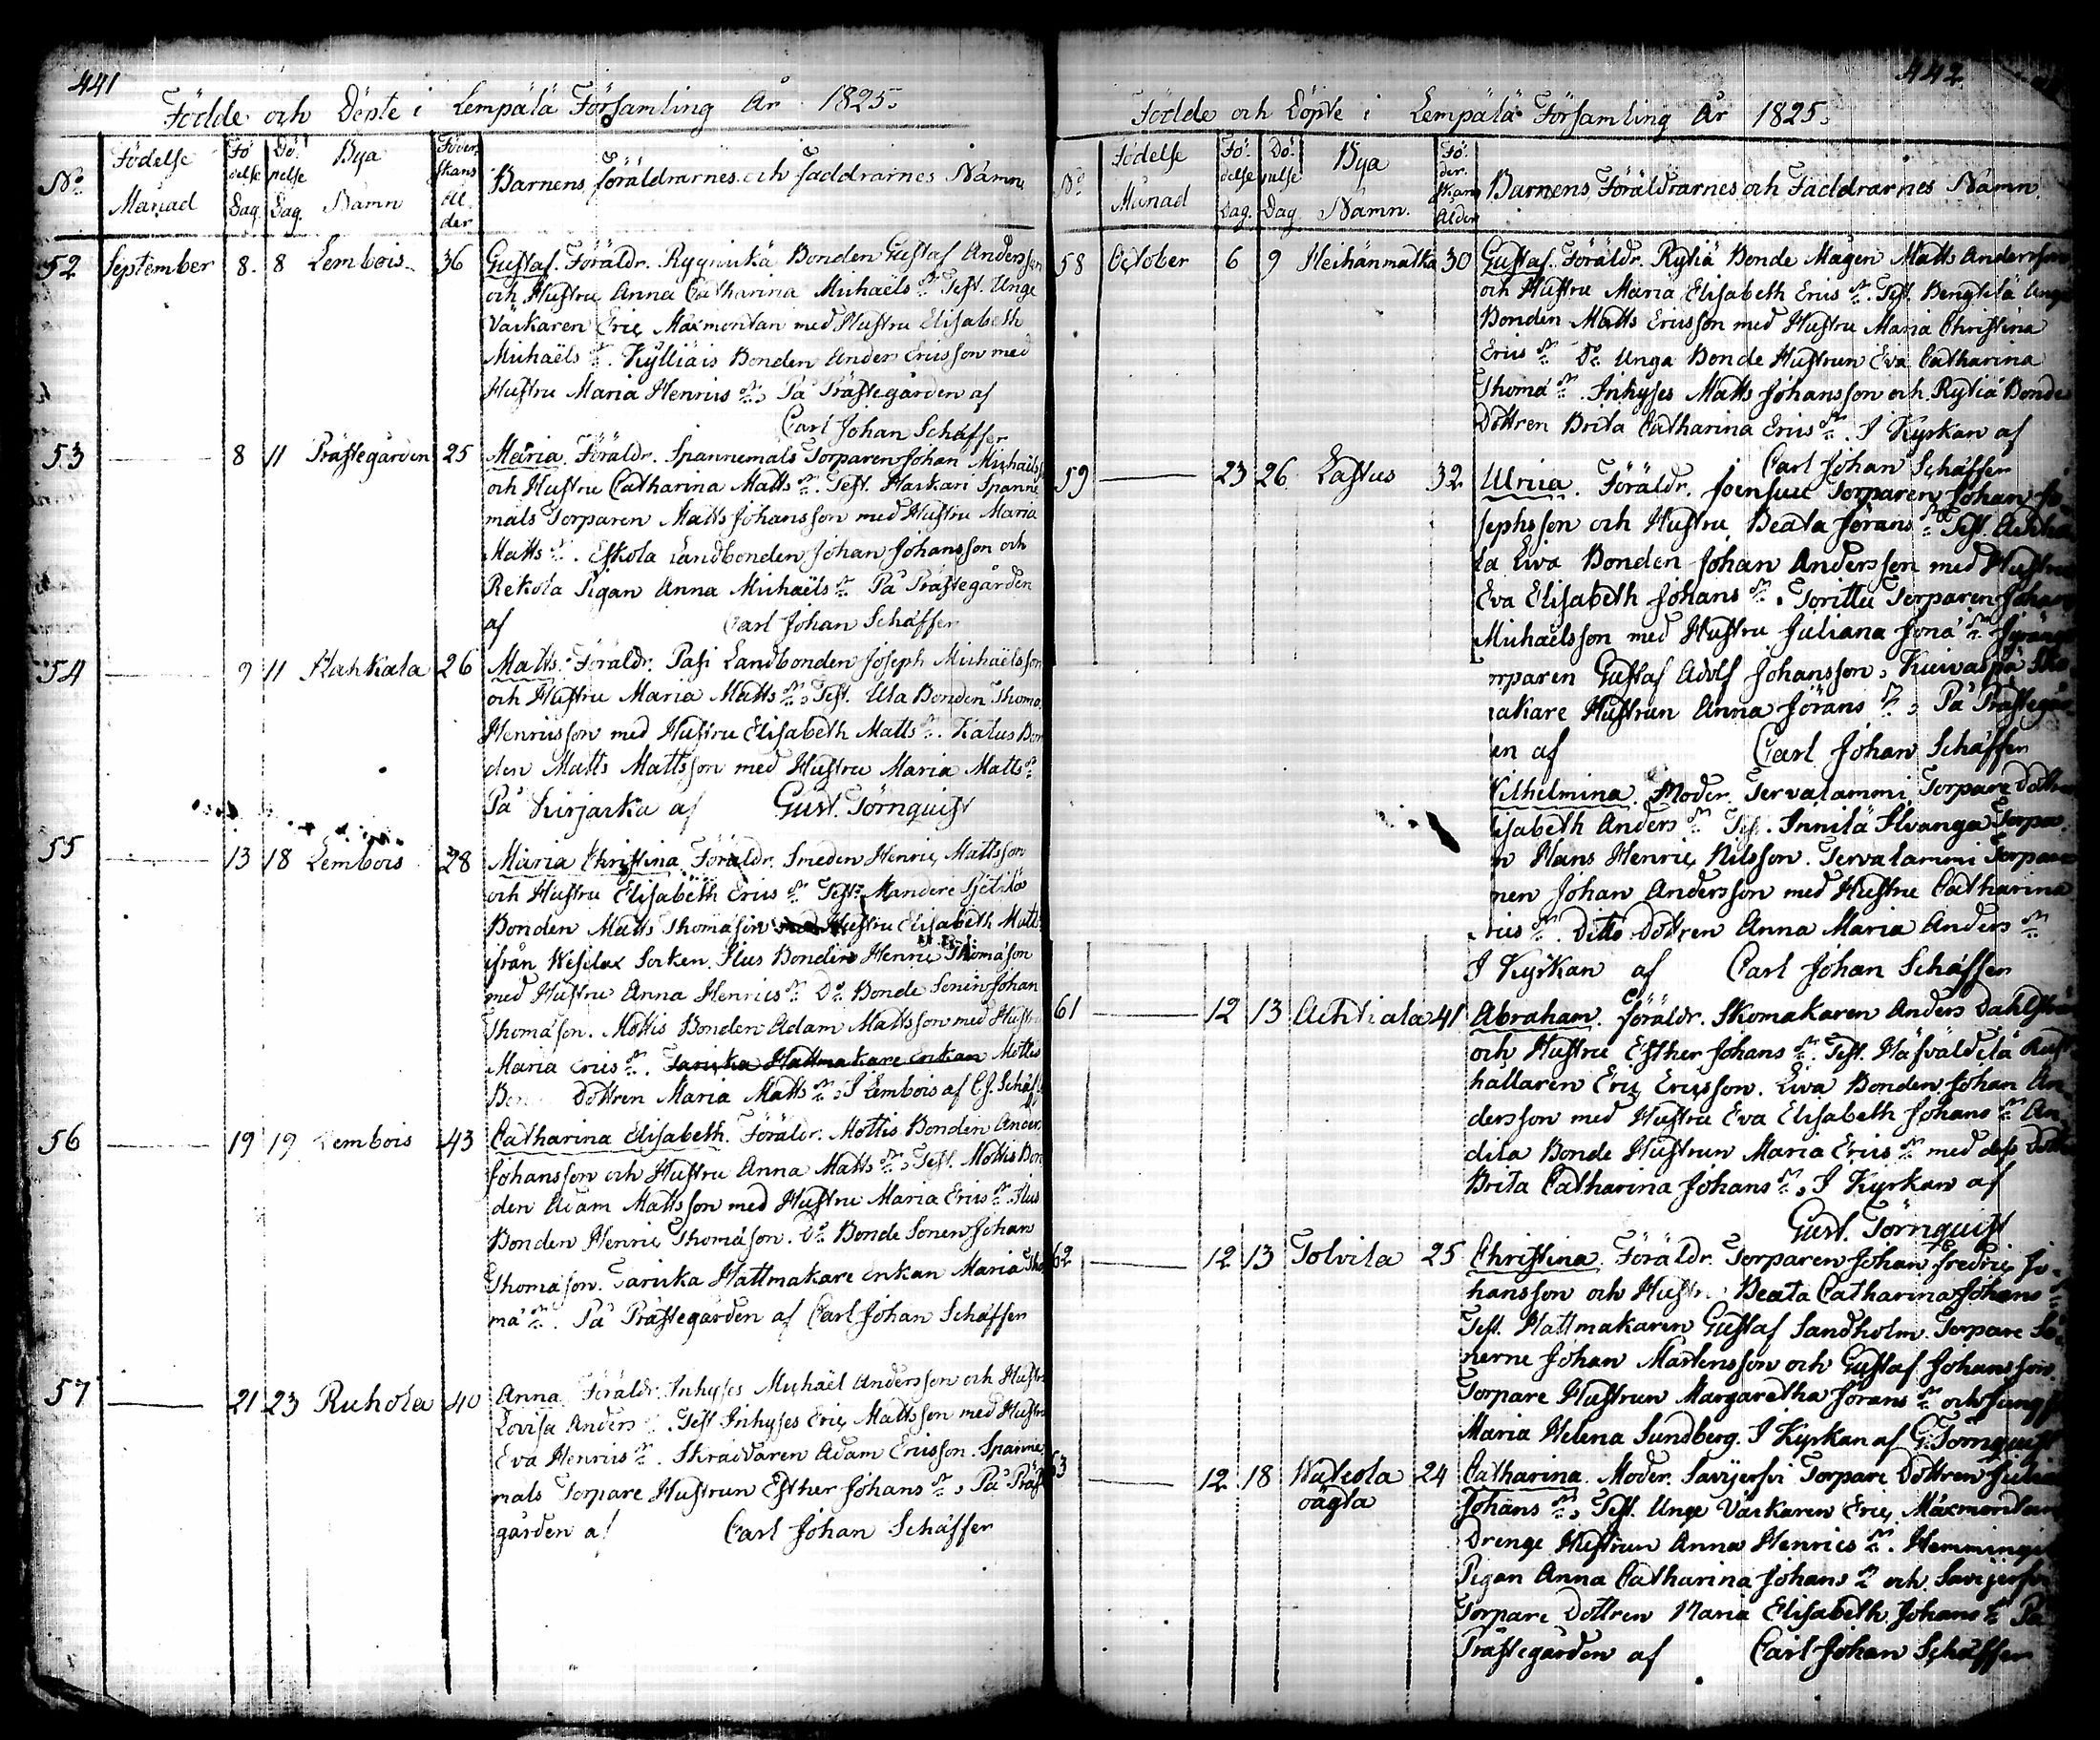 441
Födde och Döpte i Lempälä Församling År 1825.
No Födelse Månad Födelse Dag Döpelse Dag. Bya Namn Föderskans Ålder Barnens, föräldrarnes och faddrarnes Namn
52 September 8. 8 Lembois 36 Gustaf. Föräldr. Bonden Gustaf Andersson
och Hustru Anna Catharina Michaëls Dr. Test. Unge
Väckaren Eric Maxmontan med Hustru Elisabeth
Michaëls Dr. Kylliäis Bonden Anders Ericsson med
Hustru Maria Henrics Dr, På Prästegården af
Carl Johan Schäffer
53 8 11 Prästegården 25 Maria. Föräldr. Spannemåls Torparen Johan Michaëls
och Hustru Catharina Matts Dr. Test. Haskari Spanne
måls Torparen Matts Johansson med Hustru Maria
Matts Dr. Eskola Landbonden Johan Johansson och
Rekola Pigan Anna Michaëls Dr På Prästegården
af Carl Johan Schäffer
54 9 11 Hahkala 26 Matts. Föräldr. Pasi Landbonden Joseph Michaëlsson
och Hustru Maria Matts Dr, Test. Ula Bonden Thomas
Henricsson med Hustru Elisabeth Matts Dr. Katus Bon
den Matts Mattsson med Hustru Maria Matts Dr
På Kirjaska af Gust. Törnquist
55 13 18 Lembois 28 Maria Christina. Föräldr. Smeden Henric Mattsson
och Hustru Elisabeth Erics Dr Test. Mandere
Bonden Matts Thomasson med Hustru Elisabeth Matts
ifrån Wesilax Socken. Ilus Bonden Henric Thomasson
med Hustru Anna Henrics Dr Do Bonde Sonen Johan
Thomason. Mottis Bonden Adam Mattsson med Hustru
Maria Erics Dr. Taruka Hattmakare Enkan Mottis
Bon Dottren Maria Matts Dr, I Lembois af C.J. Schäffer
56 19 19 Lembois 43 Catharina Elisabeth. Föräldr. Mottis Bonden Anders
Johansson och Hustru Anna Matts Dr, Test. Mottis Bon
den Adam Mattsson med Hustru Maria Erics Dr. Ilus
Bonden Henric Thomasson. Do Bonde Sonen Johan
Thomasson. Taruka Hattmakare Enkan Maria Tho
ma Dr. På Prästegården af Carl Johan Schäffer
57 21 23 Kuhola 40 Anna. Föräldr. Inhyses Michaël Andersson och Hustru
Lovisa Anders Dr. Test Inhyses Eric Mattsson med Hustru
Eva Henrics Dr. Skräddaren Adam Ericsson. Spanne
måls Torpare Hustrun Esther Johans Dr, På Präst
gården af Carl Johan Schäffer
442
Födde och Döpte i Lempälä Församling År 1825.
No Födelse Månad Födelse Dag. Döpelse Dag Bya Namn. Föderskans Ålder Barnens, Föräldrarnes och Faddrarnes Namn.
58 October 6 9 Heihänmatka 30 Gustaf. Föräldr. Rytiä Bonde Mågen Matts Andersson
och Hustru Maria Elisabeth Erics Dr. Test. Bengtilä Unge
Bonden Matts Ericsson med Hustru Maria Christina
Erics Dr Do Unga Bonde Hustrun Eva Catharina
Thoma Dr. Inhyses Matts Johansson och Rytiä Bonde
Dottren Brita Catharina Erics Dr. I Kyrkan af
Carl Johan Schäffer
59 23 26 Lastus 32 Ulrica. Föräldr. Joensuu Torparen Johan Jo
sephsson och Hustru Beata Jörans Dr Test.
la Eiva Bonden Johan Andersson med Hustru
Eva Elisabeth Johans Dr. Torittu Torparen Johan
Michaëlsson med Hustru Juliana Jona Dr
orparen Gustaf Adolf Johansson, Kuivaspä Sko
akare Hustrun Anna Jörans Dr, På Prästegår
en af Carl Johan Schäffer
Vilhelmina. Moder Tervalammi Torpare Dottren
lisabeth Anders Dr Test. Innilä Ilvanga Torpa
n Hans Henric Nilsson. Tervalammi Torpare
nen Johan Andersson med Hustru Catharina
rics Dr. Ditto Dottren Anna Maria Anders Dr
I Kyrkan af Carl Johan Schäffer
61 12 13 Achtiala 41 Abraham. föräldr. Skomakaren Anders Dahlström
och Hustru Esther Johans Dr. Test. Ru
hållaren Eric Ericsson. Eiva Bonden Johan An
dersson med Hustru Eva Elisabeth Johans Dr An
dila Bonde Hustrun Maria Erics Dr med dess Dotter
Brita Catharina Johans Dr, I Kyrkan af
Gust. Törnquist
62 12 13 Tolvila 25 Christina. Föräldr. Torparen Johan Fredric Jo
hansson och Hustru Beata Catharina Johans Dr
Test. Hattmakaren Gustaf Sandholm. Torpare Sö
nerne Johan Mårtensson och Gustaf Johansson
Torpare Hustrun Margaretha Jörans Dr och Jungf
Maria Helena Sundberg. I Kyrkan af G. Törnquist
63 12 18 Watiola oägta 24 Catharina. Moder. Savijerfvi Torpare Dottren Julia
Johans Dr, Test. Unge Väckaren Eric Maxmontan
Drenge Hustrun Anna Henrics Dr. Hemmingi
Pigan Anna Catharina Johans Dr och Savijerfvi
Torpare Dottren Maria Elisabeth Johans Dr På
Prästegården af Carl Johan Schäffer